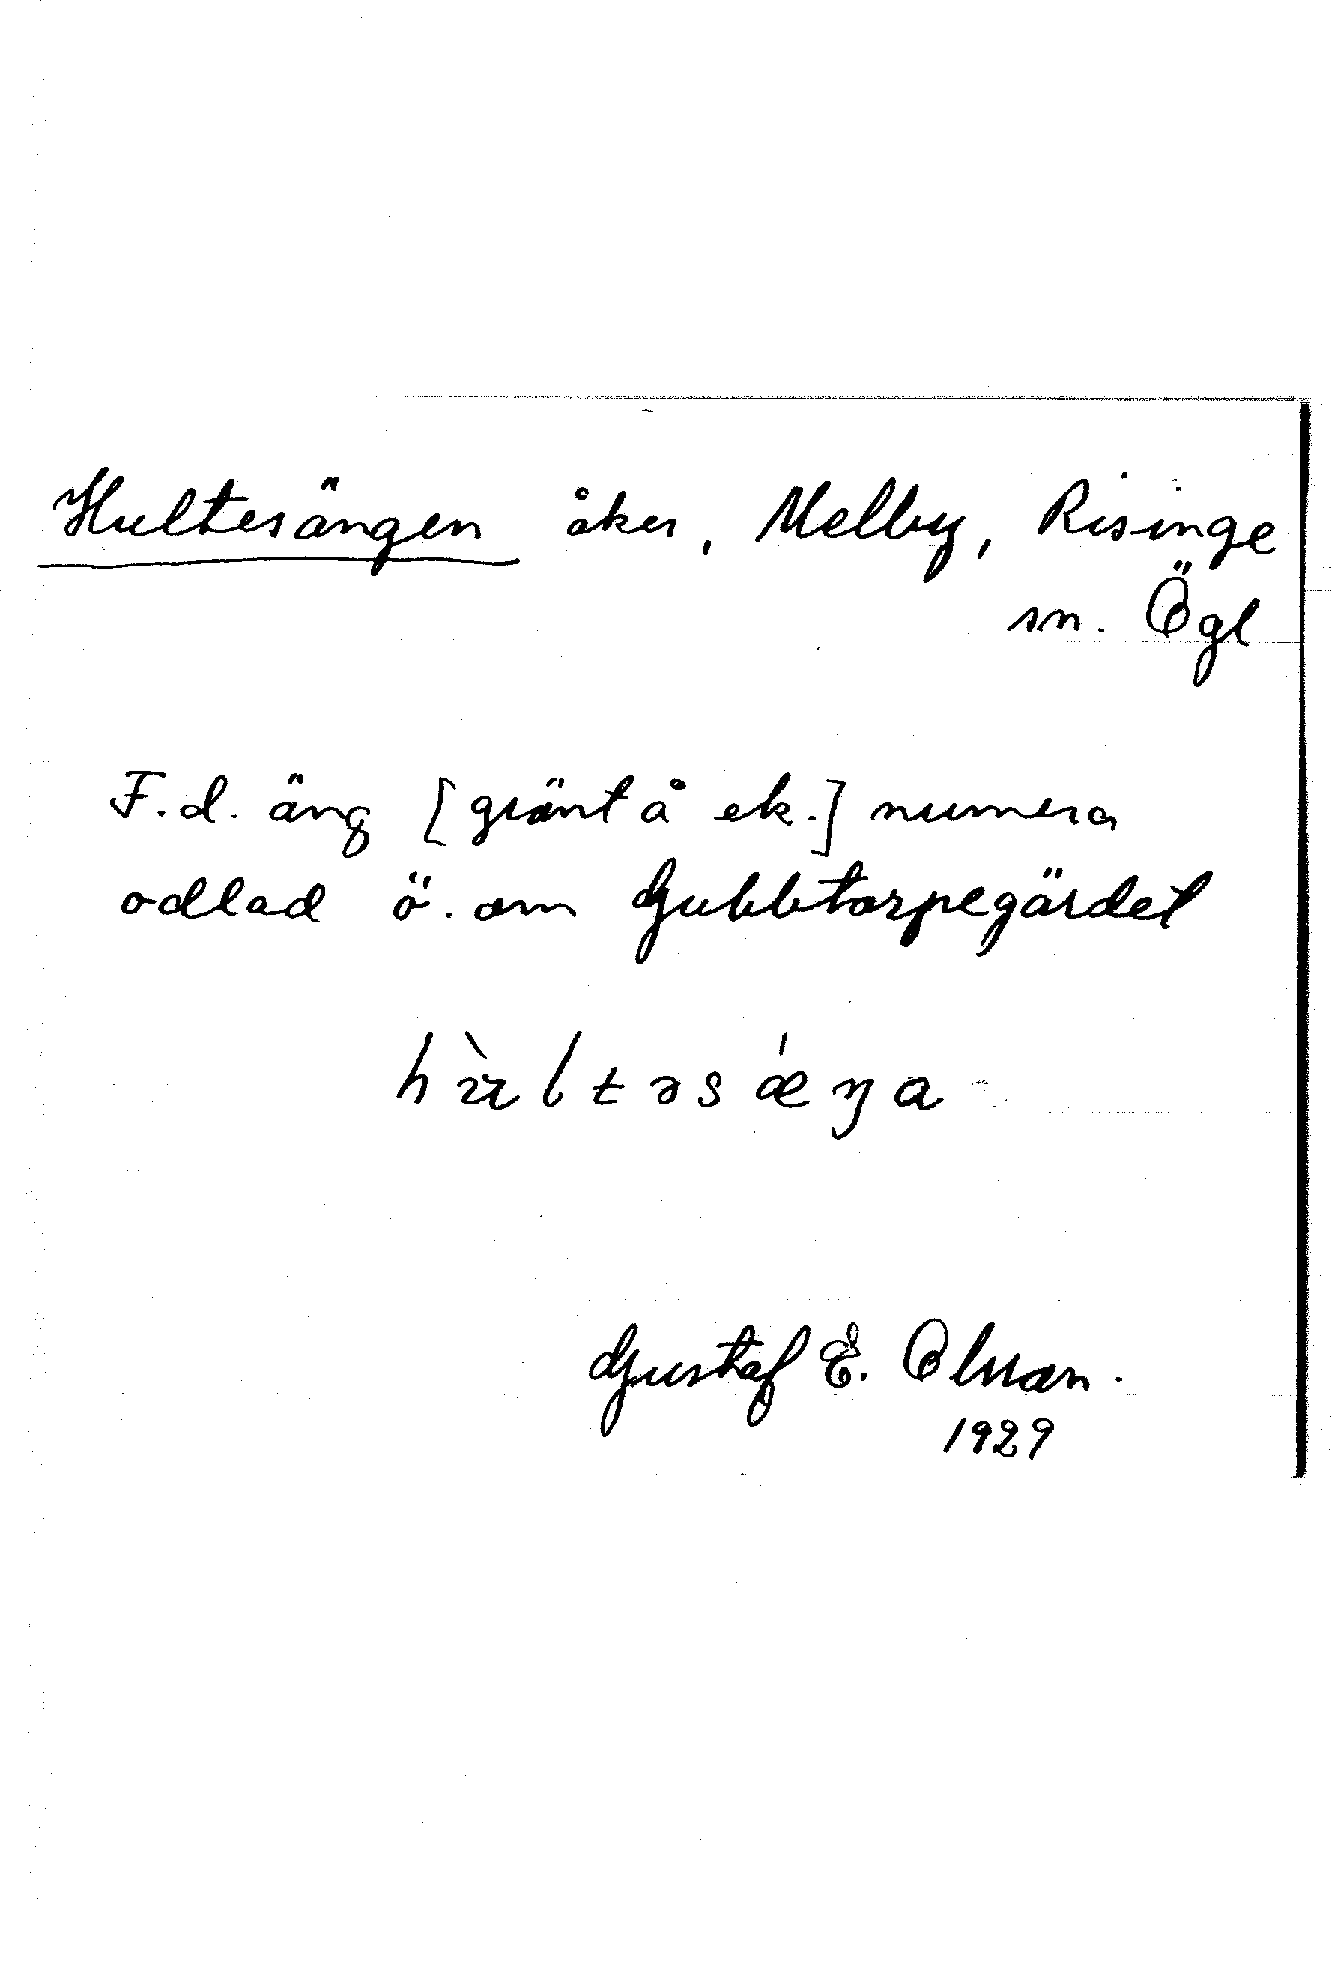 Hultesängen åker, Melby, Risinge
sn. Ögl
F.d. äng [gränt å ek.] numera
odlad ö. om Gubbtorpegärdet
hùltəsǽŋa
Gustaf E. Olsson.
1929